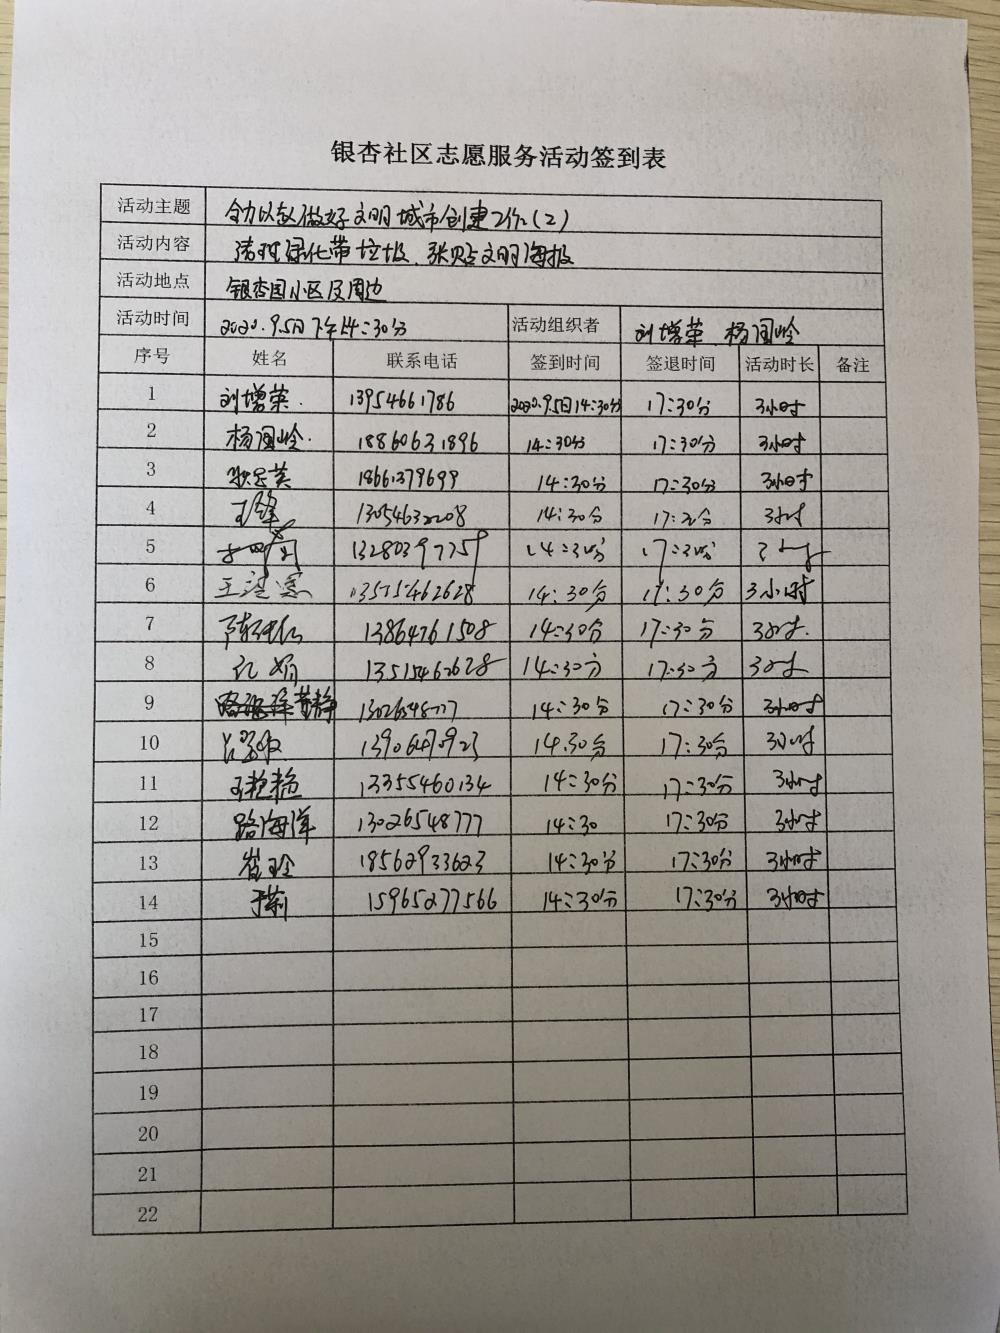 银杏社区志愿服务活动签到表
活动主题 全力以赴做好文明城市创建工作(2)
活动内容 清理绿化带垃圾、张贴文明海报
活动地点 银杏园小区及周边
活动时间 2020.9.5日下午14:30分 活动组织者 刘增荣、杨国岭
序号 姓名 联系电话 签到时间 签退时间 活动时长 备注
1 刘增荣 13954661786 2020.9.5日14:30分 17:30分 3小时
2 杨国岭 18860631896 14:30分 17:30分 3小时
3 18661379699 14:30分 17:30分 3小时
4 王锋 13054632208 14:30分 3小时
5 14:30分 17:30分
6 13515462628 14:30分 17:30分 3小时
7 13864761508 14:30分 17:30分 3小时
8 13515462628 14:30分 17:30分 3小时
9 14:30分 17:30分 3小时
10 14.30分 17:30分 3小时
11 王艳艳 13355460134 14:30分 17:30分 3小时
12 路海洋 13026548777 14:30 17:30分 3小时
13 崔玲 18562933623 14:30分 17:30分 3小时
14 于莉 15965277566 14:30分 17:30分 3小时
15
16
17
18
19
20
21
22